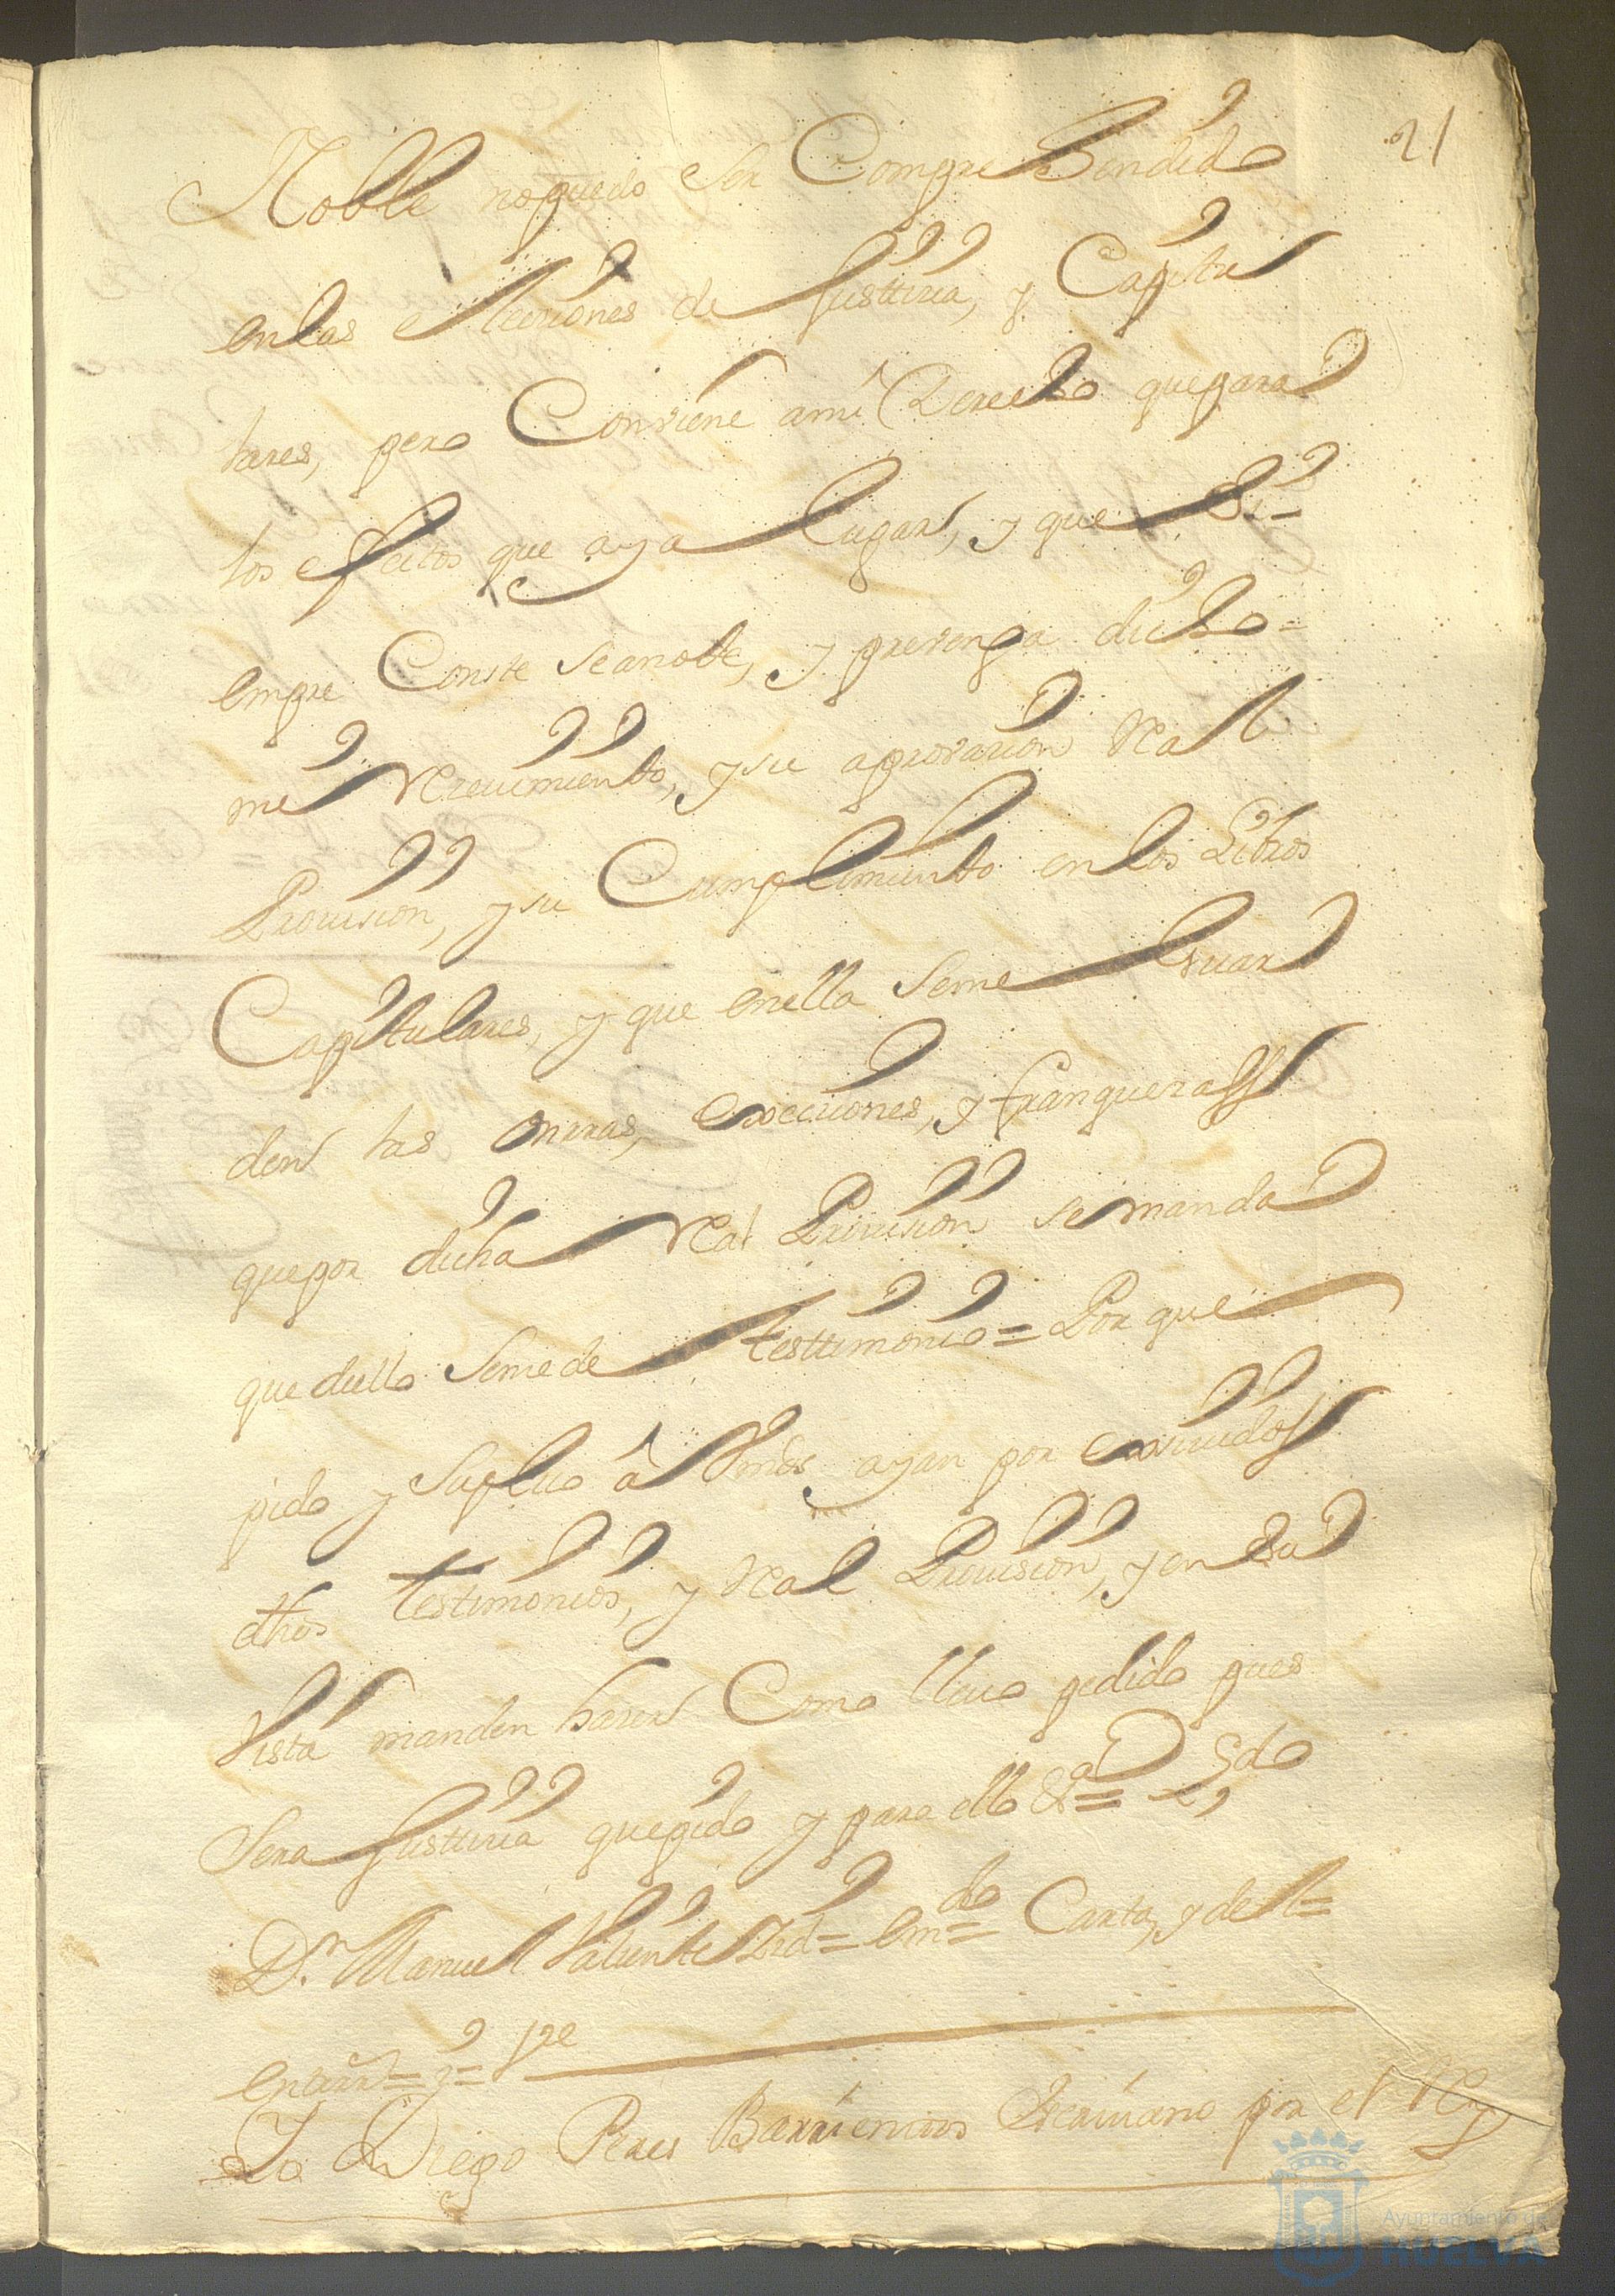 21
Noble no puedo ser Comprehendido
en las elecciones de Justticia, y Capitu
lares, pero Conviene a mi Derecho que para
los efectos que aya lugar, y que Si=
empre Conste se anote, y prevenga dicho=
mi Recevimiento, y su aprovacion Real
Provision, y su Cumplimiento en los Libros
Capitulares, y que en ella se me Guar
den las onrras, execciones, y franquezas
que por dicha Real Provision se manda
que dello se me de testtimonio = Por que
pido y suplico â Vmds ayan por exsividos
dhos testimonios, y Real Provision, y en su
Vista manden hazer Como llevo pedido pues
Sera Justticia que pido y para ello &a=
Dn Manuel Valiente = emdo= Carta, y del=
entrerr= = pre
Yo Diego Peres Barrientos Escrivano por el Rey
Ayuntamiento de
HUELVA